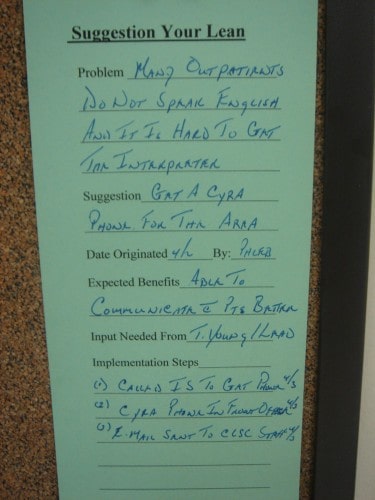 Suggestion Your Lean
Problem Many Outpatients
Do Not Speak English
And It Is Hard To Get
The Interpreter
Suggestion Get A Cyra
Phone For The Area
Date Originated 4/2 By: Phleb
Expected Benefits Able To
Communicate c̄ Pts Better
Input Needed From T. Young/Lead
Implementation Steps
(1) Called IS To Get Phone 4/3
(2) Cyra Phone In Front Office 4/3
(3) E-Mail Sent To CLSC Staff 4/3